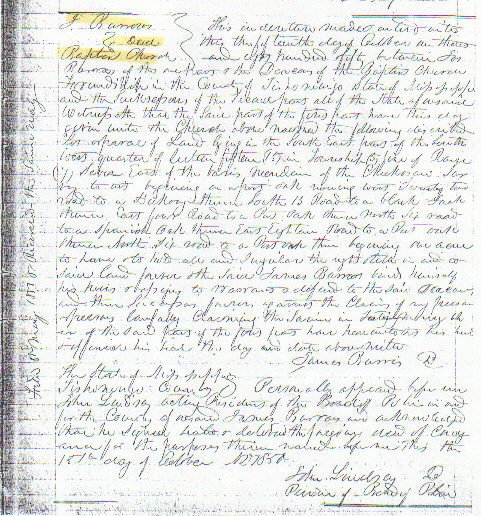 J. Barrows
Deed
Baptist Church
This indenture maded entered into
this the fifteenth day of October in there
and eight hundred fifty between Jas
Barrows of the one part & the Deacons of the Baptist Church
in the County of Tishomingo State of Mississippi
and the successors of the Second part all of the State aforesaid
Witnesseth that the said part of the first part have this day
given unto the Church above named the following described
lot or parcel of Land lying in the South East part of the South
West quarter of Section fifteen (15) in Township five of Range
(7) Seven East of the basis meridian of the Chickasaw Sur
vey to wit beginning on a post oak running west twenty two
road to a Hickory thence South 13 Road to a black Jack
thence East four Road to a Post Oak thence North six road
to a Spanish Oak thence East Eighteen Road to a Post oak
thence North Six road to a Post oak then begining one acre
to have & to hold all and singular the right title in and to
said land forever & the said James Barrows bind himself
his heirs to warrant & defend to the said Deacons
and their Successors forever against the Claims of any person
or persons lawfully claiming the same in testimony where
of the said part of the first part have hereunto his hand
& affixed his seal this day and date above written
James Barrows
The State of Mississippi
Tishomingo County
Personally appeared before me
John Lindsey acting President of the Board of Police in and
for the County aforesaid James Barrows and acknowledged
that he signed sealed & delivered the foregoing deed of Convey
ance for the purposes therein named before me this the
15th day of October AD 1850
John Lindsey
President of Board of Police